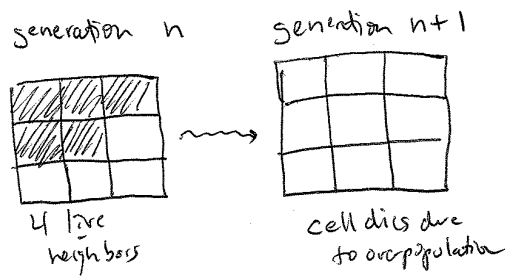 generation n
generation n+1
4 live
neighbors
cell dies due
to overpopulation